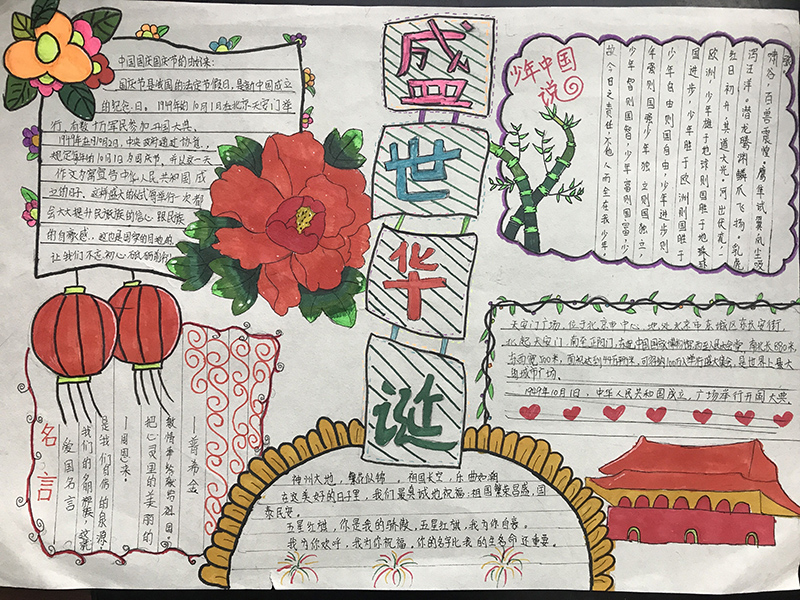 盛世华诞
中国国庆国庆节的由来:
国庆节是我国的法定节假日,是新中国成立
的纪念日。1949年的10月1日在北京天安门举
行,有数十万军民参加开国大典。
规定每年的10月1日为国庆节,并以这一天
作文为宣告中华人民共和国成
立的日子。这样盛大的仪式每举行一次都
会大大提升民族的信心
的自豪感。
让我们不忘初心砥砺前行!
少年中国说
故今日之责任,不他人而全在我少年,
少年智则国智,少年富则国富,少
年强则国强少年独立则国独立,
少年自由则国自由,少年进步则
国进步,少年胜于欧洲则国胜于
欧洲,少年雄于地球则国雄于地球
红日初升,其道大光,河出伏流,一
泻汪洋,潜龙腾渊鳞爪飞扬,乳虎
啸谷,百兽震惶,鹰隼试翼风尘吸
名言
爱国名言
我们的名族,这就
是我们自信的泉源。
——周恩来
把心灵里的美丽的
献给祖国。
——普希金
天安门广场,位于北京市中心,地处北京市东城区东长安街,
北起天安门,南至正阳门,东起中国国家博物馆西至人民大会堂,南北长880米,
东西宽500米,面积达到44万平方米,可容纳100万人举行盛大集会,是世界上最大
的城市广场。
1949年10月1日,中华人民共和国成立,广场举行开国大典。
神州大地,繁花似锦,祖国长空,乐曲如潮
在这美好的日子里,我们最真诚地祝福:祖国繁荣昌盛,国
泰民安。
五星红旗,你是我的骄傲,五星红旗,我为你自豪。
我为你欢呼,我为你祝福,你的名字比我的生命还重要。